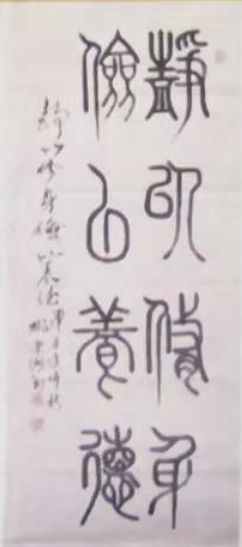 靜以修身
儉以養德
靜以修身儉以養德